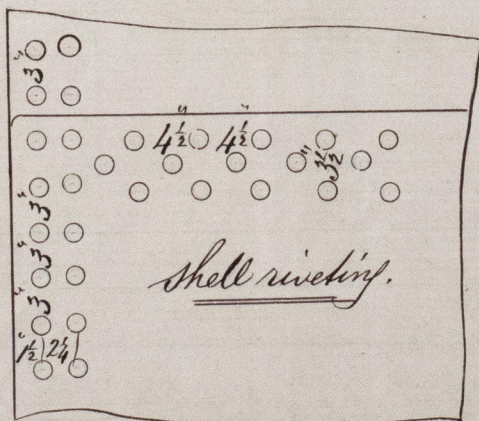 3"
4 1/2" 4 1/2"
3 1/2"
3"
3"
3"
shell riveting.
1 1/2" 2 1/4